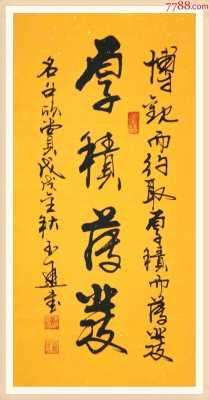 7788.com
博观而约取厚积而薄发
厚积薄发
名仕欣赏戊戌金秋玉